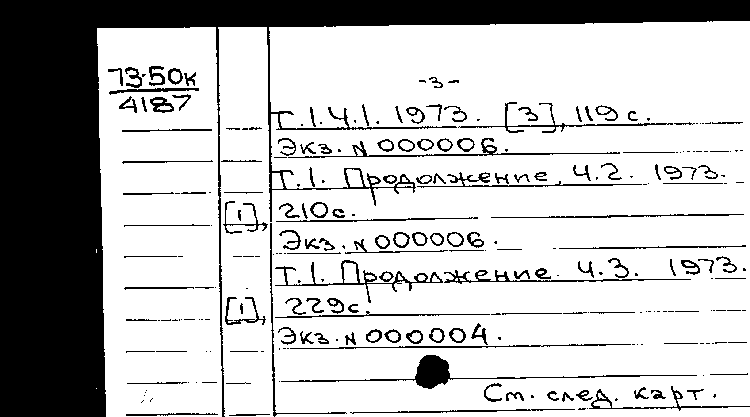 73-50к
4187
-3-
Т.1.Ч.1. 1973. [3], 119 с.
Экз. N 000006.
Т.1. Продолжение, Ч.2. 1973.
[1], 210с.
Экз. N 000006.
Т.1. Продолжение. Ч.3. 1973.
[1], 229с.
Экз. N 000004.
См. след. карт.